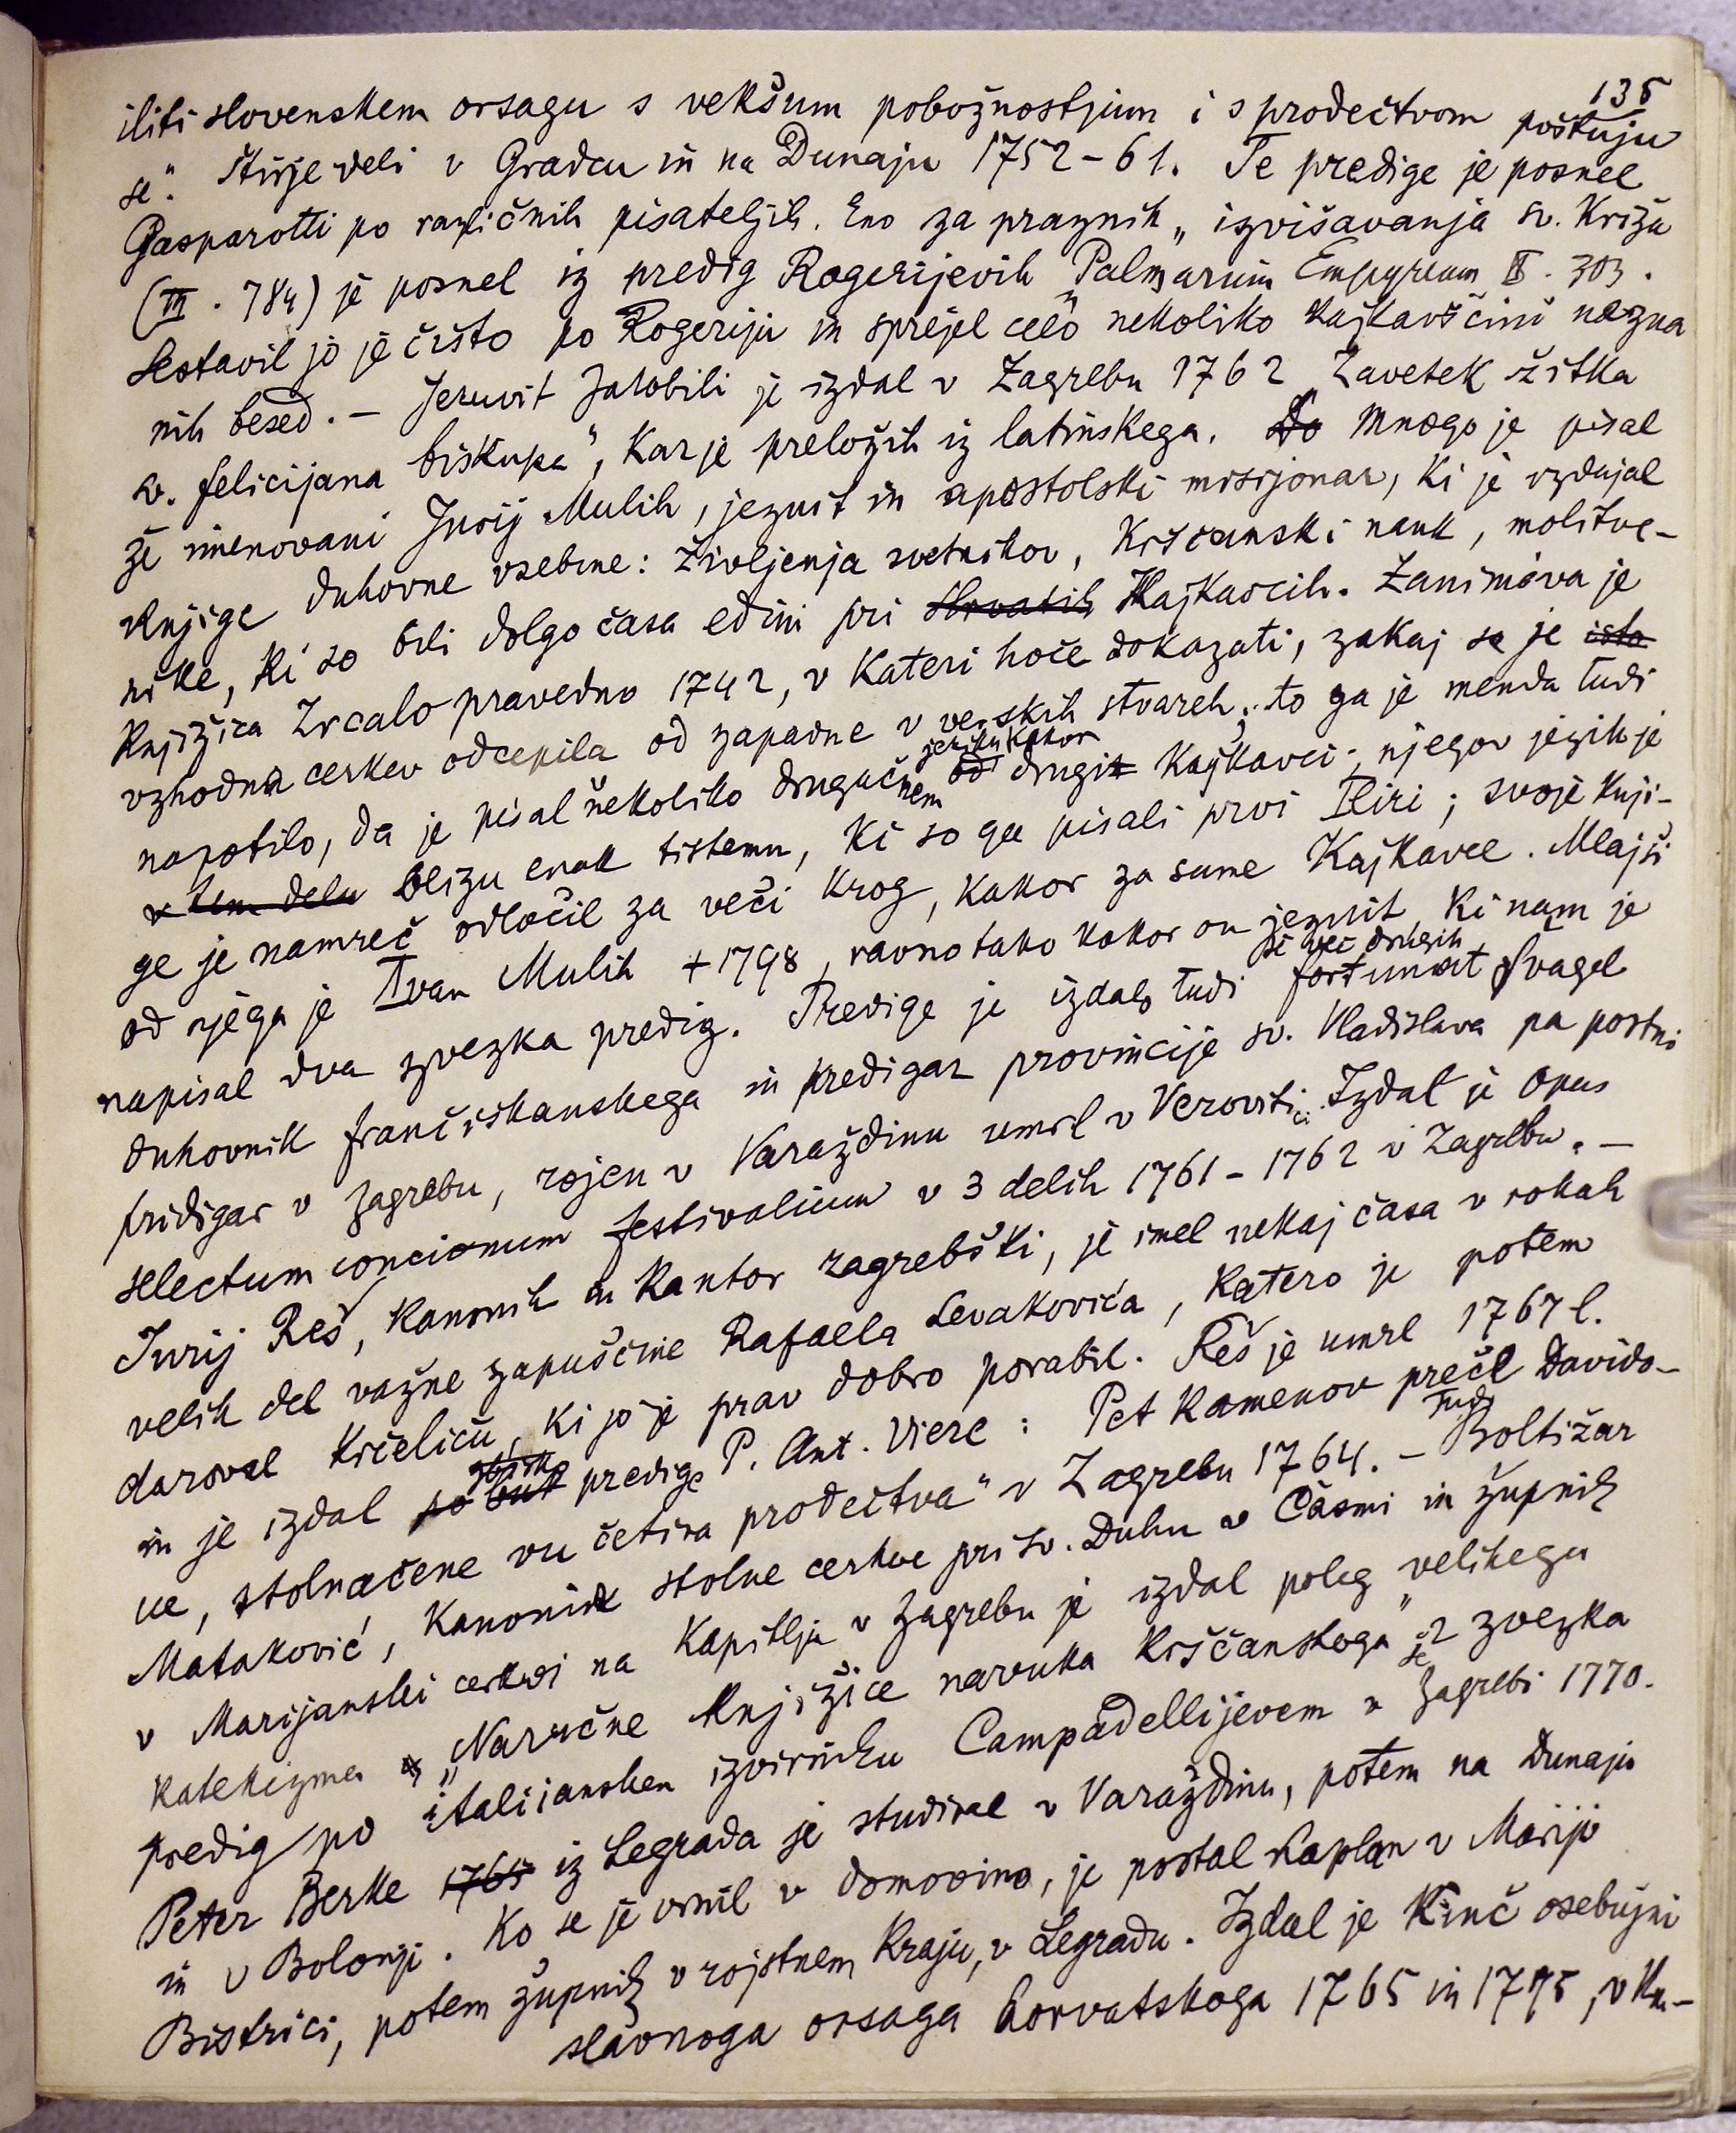 135
iliti slovenskem orsagu s vekšum pobožnostjum i s prodečtvom poštuju
se". Štirje deli v Gradcu in na Dunaju 1752-61. Te predige je posnel
Gasparotti po različnih pisateljih. Eno za praznik „izvišavanja sv. Križa
(III. 784) je posnel iz predig Rogerijevih „Palmarium Empyreum" II. 303.
Sestavil jo je čisto po Rogeriju in sprejel celo nekoliko kajkavščini nezna
nih besed. – Jezuvit Jakobili je izdal v Zagrebu 1762 „Zavetek žitka
sv. Felicijana biskupa", kar je preložil iz latinskega. Do Mnogo je pisal
že imenovani Jurij Mulih, jezuit in apostolski misijonar, ki je izdajal
knjige duhovne vsebine: življenja svetnikov, krščanski nauk, molitve-
nike, ki so bili dolgo časa edini pri Hrvatih Kajkavcih. Zanimiva je
knjižica Zrcalo pravedno 1742, v kateri hoče dokazati, zakaj se je isto
vzhodna cerkev odcepila od zapadne v verskih stvareh; to ga je menda tudi
napotilo, da je pisal nekoliko drugačnem jeziku kakor od drugih Kajkavci; njegov jezik je
v tem delu blizu enak tistemu, ki so ga pisali prvi Iliri; svoje knji-
ge je namreč odločil za veči krog, kakor za same Kajkavce. Mlajši
od njega je Ivan Mulih +1798, ravno tako kakor on jezuit, ki nam je
napisal dva zvezka predig. Predige je izdal tudi še več drugih Fortunat Švagel
duhovnik frančiškanskega in predigar provincije sv. Vladislava pa postni
pridigar v Zagrebu, rojen v Varaždinu umrl v Verovitici. Izdal je Opus
selectum concionum festivalium v 3 delih 1761-1762 v Zagrebu. –
Jurij Reš, kanonik in kantor zagrebški, je imel nekaj časa v rokah
velik del važne zapuščine Rafaela Levakovića, katero je potem
daroval Krčeliću, ki jo je prav dobro porabil. Reš je umrl 1767 l.
in je izdal predige P. Ant. Viere: Pet kamenov preče Davido-
ve, stolnačene vu četira prodečtva" v Zagrebu 1764. – Tudi Boltižar
Mataković, kanonik stolne cerkve pri sv. Duhu v Časmi in župnik
v Marijanski cerkvi na Kapitlju v Zagrebu je izdal poleg velikega
katekizma „Naručne knjižice navuka krščanskoga" še 2 zvezka
predig po italijanskem izvirniku Campadellijevem v Zagrebi 1770.
Peter Berke 1765 iz Legrada je studiral v Varaždinu, potem na Dunaju
in v Bolonji. Ko se je vrnil v domovino, je postal kaplan v Mariji
Bistrici, potem župnik v rojstnem kraju, v Legradu. Izdal je Kinč osebujni
slavnoga orsaga horvatskoga 1765 in 1775, v kn-